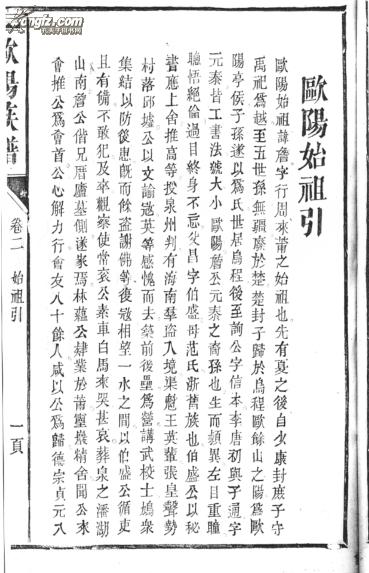 歐陽始祖引
歐陽始祖諱詹字行周來莆之始祖也先有夏之後自少康封庶子守
禹祀爲越至五世孫無疆縻於楚楚封子歸於烏程歐餘山之陽爲歐
陽亭侯子孫遂以爲氏世居烏程後至詢公字信本李唐初與子通字
元泰皆工書法號大小歐陽詹公元泰之裔孫也生而頴異左目重瞳
聰悟絕倫過目終身不忘父昌字伯盛母范氏浙舊族也伯盛公以秘
書應上舍推高等授泉州判有海南羣盜入境渠魁王英輩張皇聲勢
村落邱墟公以文諭逆英等感愧而去築前後壘爲營講武校士塢衆
集結以防後患旣而餘盜謝佛等復寇相望一水之間以伯盛公循吏
且有備不敢犯及卒觀察使常衮公素車白馬來哭甚哀葬泉之潘湖
山南詹公偕兄厝廬墓側遂家焉林蘊公肄業於莆靈巖精舍聞公來
會推公爲會首公心解力行會友八十餘人咸以公爲歸德宗貞元入
歐陽族譜
卷二
始祖引
一頁